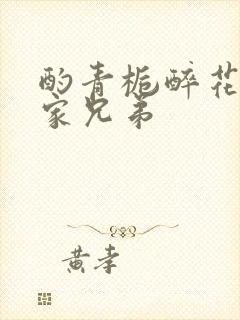 酌青栀醉花
家兄弟
黄孝